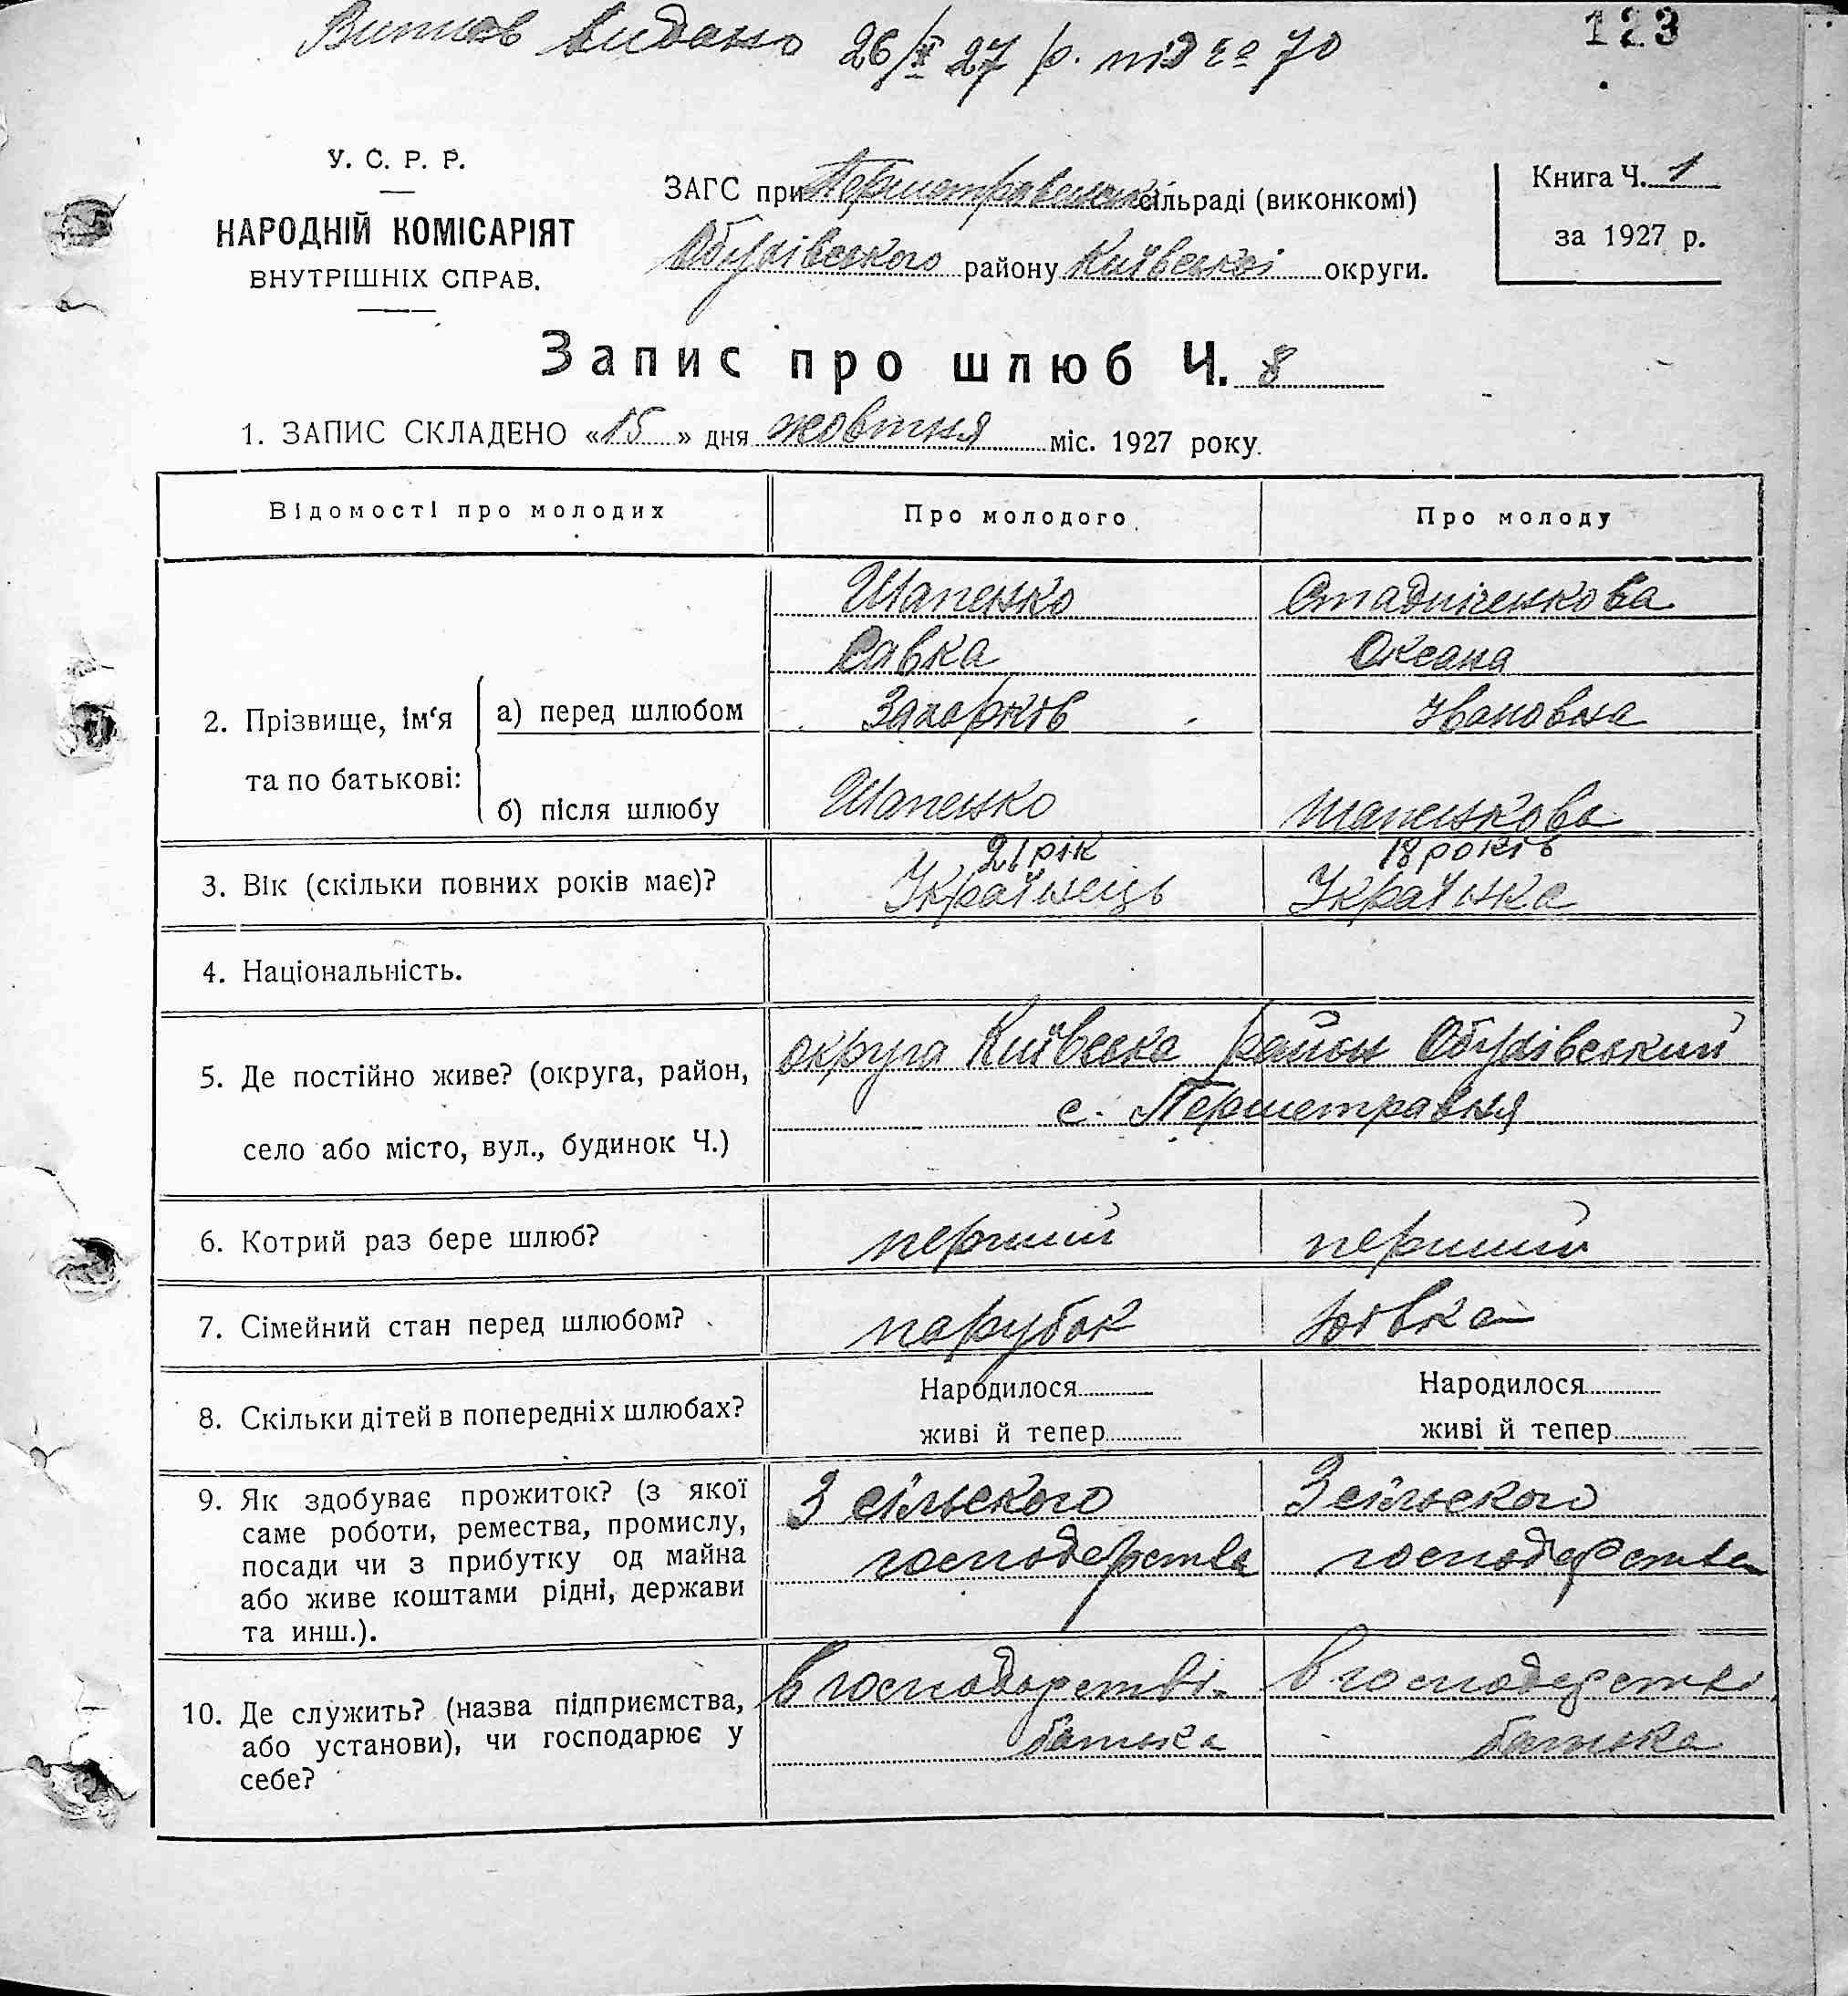 Витяг видано 26/X 27 р. під № 70
123
У. С. Р. Р.
НАРОДНІЙ КОМІСАРІЯТ
ВНУТРІШНІХ СПРАВ.
ЗАГС при Першетравенській сільраді (виконкомі)
Обухівського району Київської округи.
Книга Ч. 1
за 1927 р.
Запис про шлюб Ч. 8
1. ЗАПИС СКЛАДЕНО «15» дня жовтня міс. 1927 року.
Відомості про молодих
Про молодого
Про молоду
2. Прізвище, ім‘я
та по батькові:
а) перед шлюбом
Шапенко
Савка
Захарків
Стадніченкова
Оксана
Івановна
б) після шлюбу
Шапенко
Шапенкова
3. Вік (скільки повних років має)?
21 рік
Українець
18 років
Українка
4. Національність.
5. Де постійно живе? (округа, район,
село або місто, вул., будинок Ч.)
округа Київська район Обухівський
с. Першетравня
6. Котрий раз бере шлюб?
перший
перший
7. Сімейний стан перед шлюбом?
парубок
дівка
8. Скільки дітей в попередніх шлюбах?
Народилося
живі й тепер
Народилося
живі й тепер
9. Як здобуває прожиток? (з якої
саме роботи, ремества, промислу,
посади чи з прибутку од майна
або живе коштами рідні, держави
та инш.).
З сільского
господарства
З сільского
господарства
10. Де служить? (назва підприємства,
або установи), чи господарює у
себе?
в господарстві
батька
в господарстві
батька